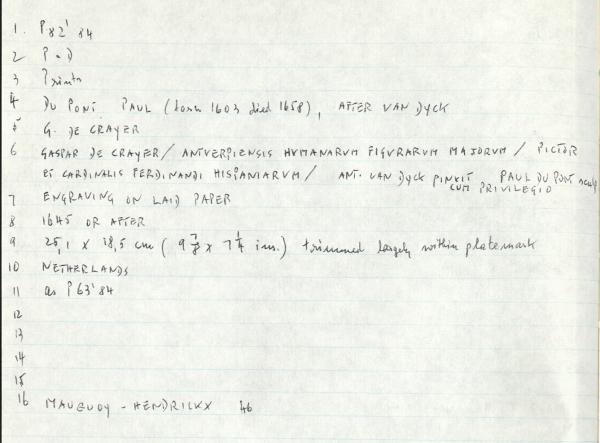 1. P82'84
2 P.D
3 Prints
4 DU PONT PAUL (born 1603 died 1658), AFTER VAN DYCK
5 G. DE CRAYER
6 GASPAR DE CRAYER / ANTVERPIENSIS HVMANARVM FIGVRARVM MAJORVM / PICTOR
ET CARDINALIS FERDINANDI HISPANIARVM / ANT. VAN DYCK PINXIT PAUL DU PONT sculp
CUM PRIVILEGIO
7 ENGRAVING ON LAID PAPER
8 1645 OR AFTER
9 25,1 x 18,5 cm (9 7/8 x 7 1/4 ins.) trimmed largely within platemark
10 NETHERLANDS
11 as P63'84
12
13
14
15
16 MAUQUOY - HENDRICKX 46